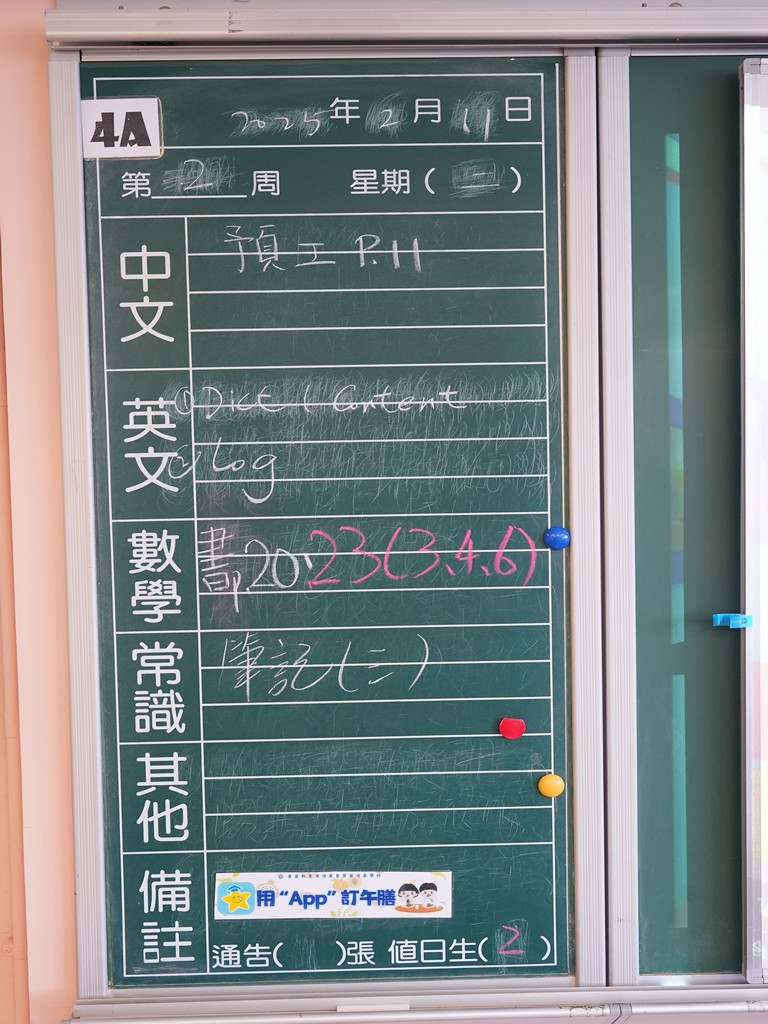 4A
2025年2月11日
第2周 星期(二)
中文
預工 P.11
英文
① Dict 1 Content
② Log
數學
書P.20、23(3、4、6)
常識
筆記(二)
其他
備註
用“App”訂午膳
通告( )張 值日生(2)